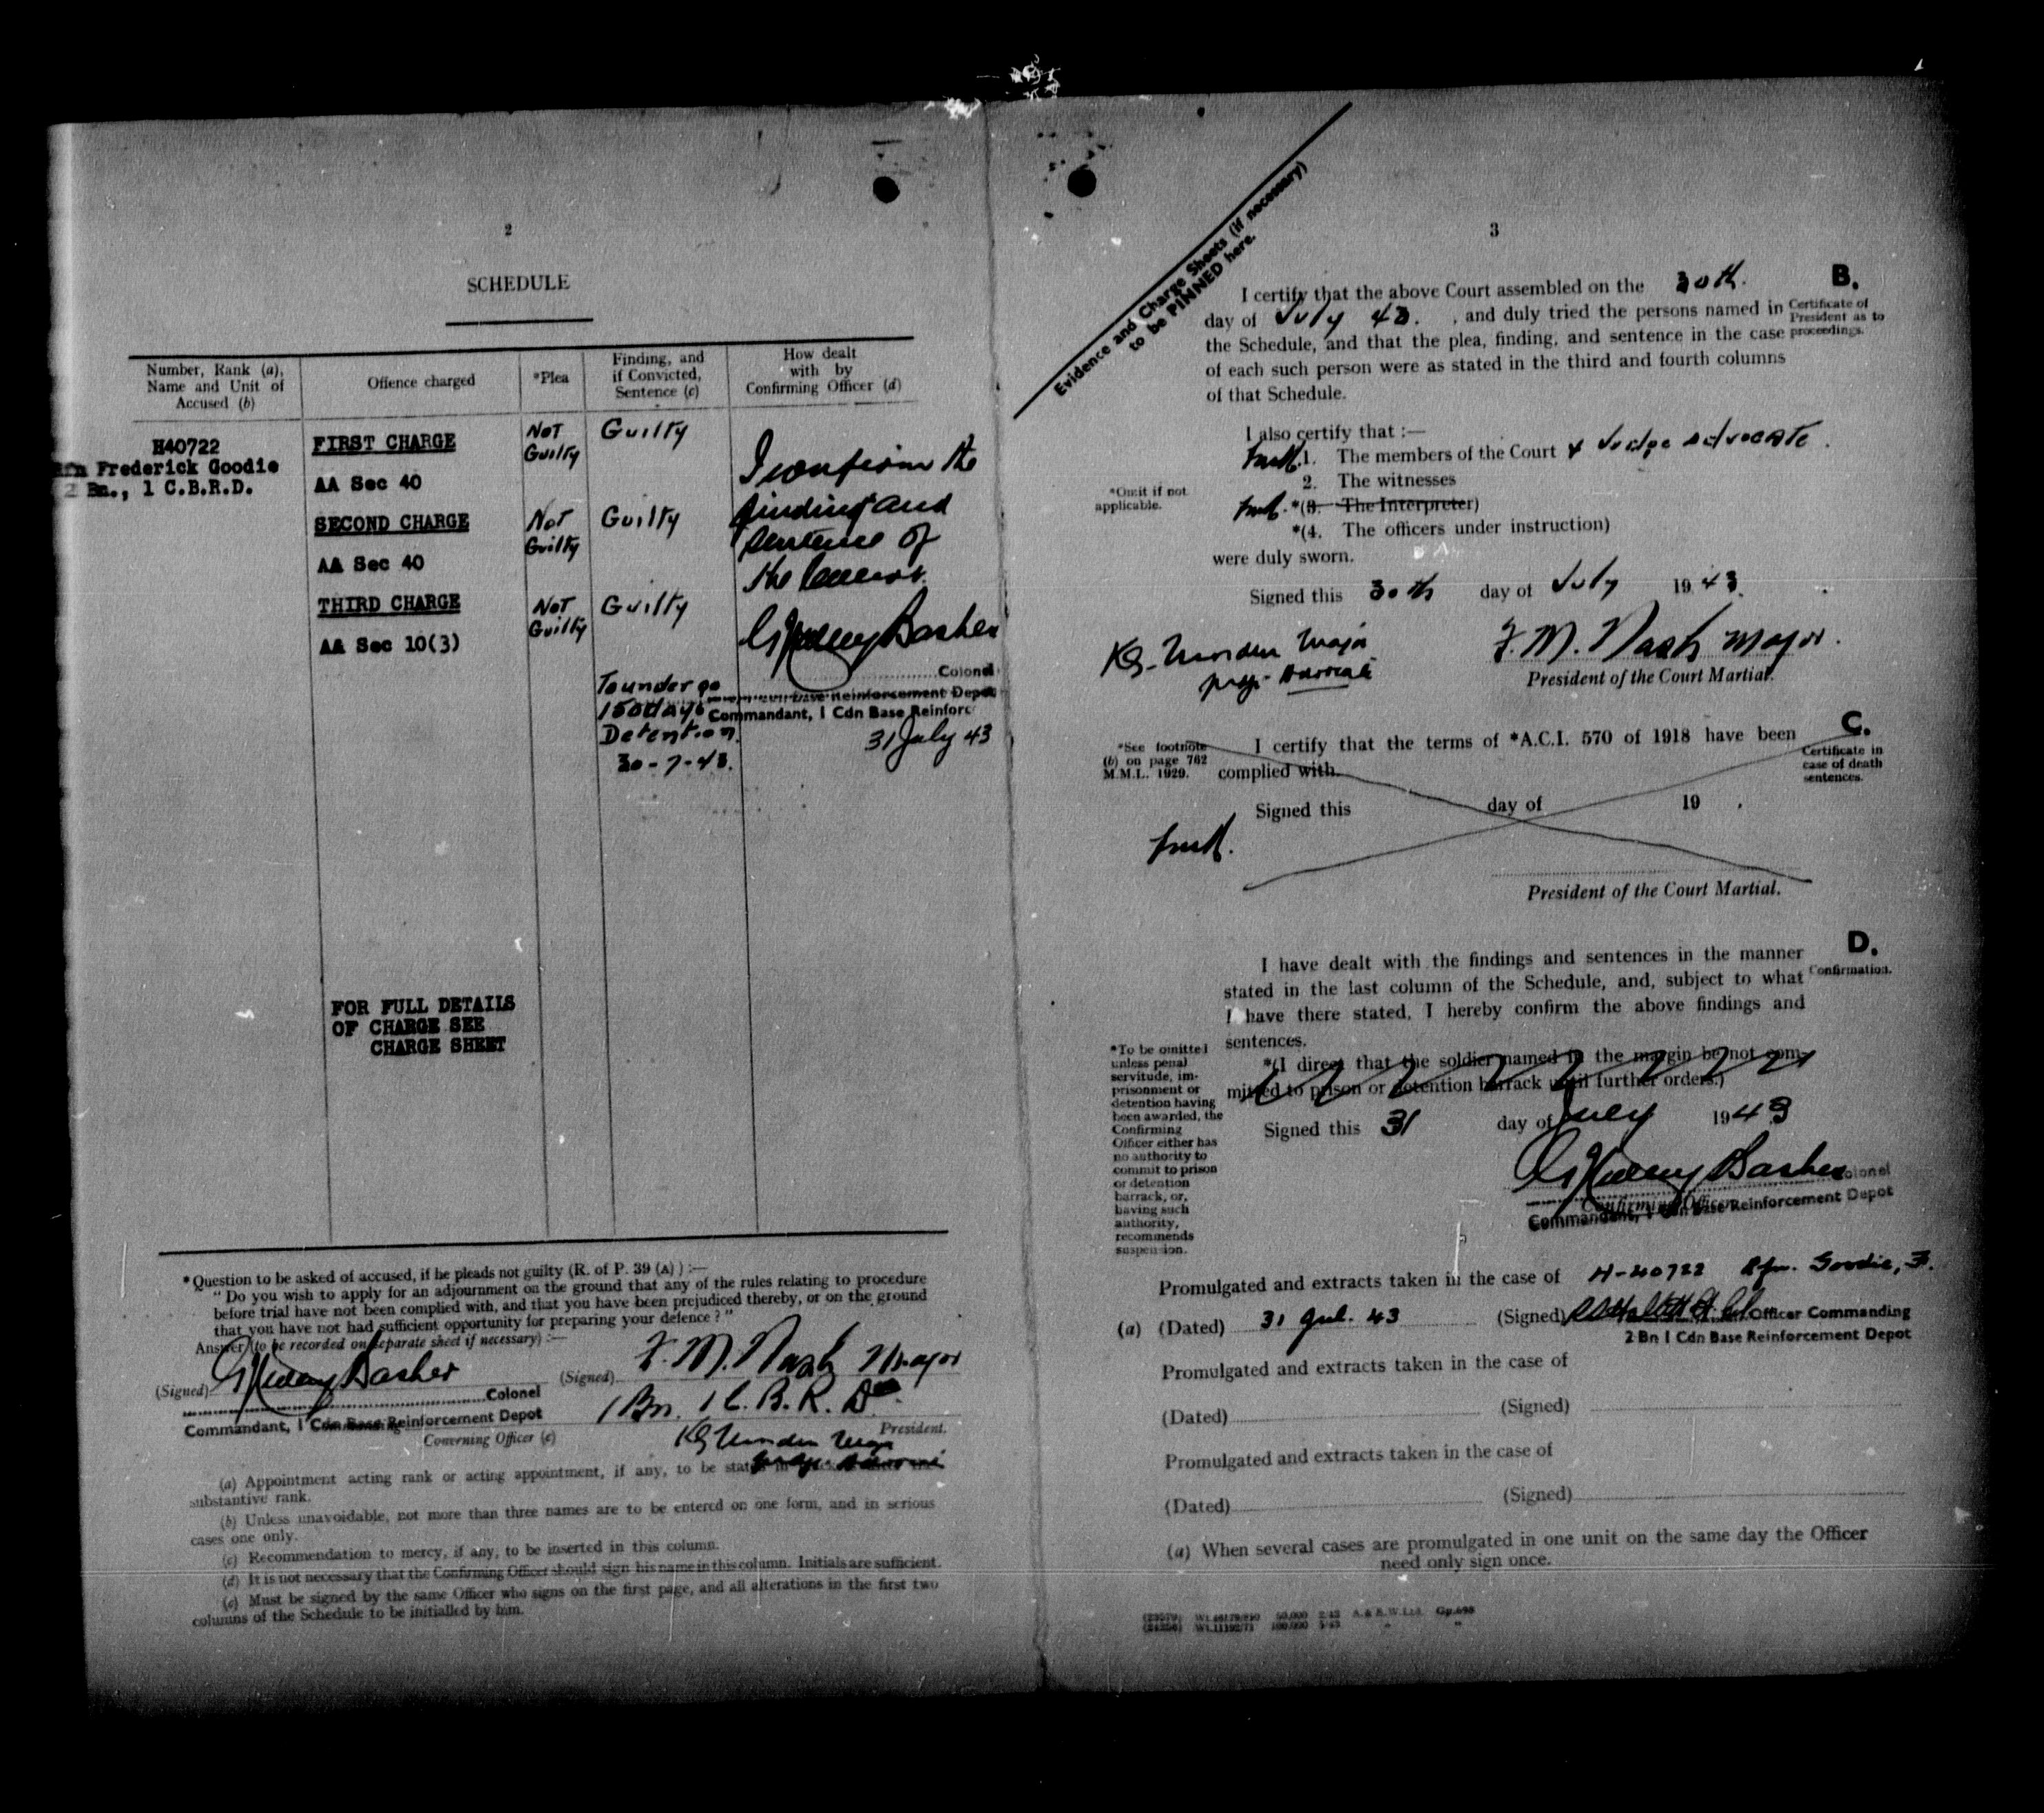 2
SCHEDULE
Number, Rank (a), Name and Unit of Accused (b)
Offence charged
*Plea
Finding, and if Convicted, Sentence (c)
How dealt with by Confirming Officer (d)
H40722
Rfn Frederick Goodie
2 Bn., 1 C.B.R.D.
FIRST CHARGE
AA Sec 40
Not Guilty
Guilty
SECOND CHARGE
AA Sec 40
Not Guilty
Guilty
THIRD CHARGE
AA Sec 10(3)
Not Guilty
Guilty
To undergo
150 days
Detention.
30-7-43.
I confirm the
finding and
sentence of
the Court.
Basher
Colonel
Commandant, 1 Cdn Base Reinforc
31 July 43
FOR FULL DETAILS
OF CHARGE SEE
CHARGE SHEET
*Question to be asked of accused, if he pleads not guilty (R. of P. 39 (A) ) :—
" Do you wish to apply for an adjournment on the ground that any of the rules relating to procedure
before trial have not been complied with, and that you have been prejudiced thereby, or on the ground
that you have not had sufficient opportunity for preparing your defence ? "
Answer (to be recorded on separate sheet if necessary) :—
(Signed) Basher
Colonel
Commandant, 1 Cdn Base Reinforcement Depot
Convening Officer (e)
(Signed) F. M. Nash Major
1 Bn. 1 C. B. R. D.
President.
(a) Appointment acting rank or acting appointment, if any, to be stated in
substantive rank.
(b) Unless unavoidable, not more than three names are to be entered on one form, and in serious
cases one only.
(c) Recommendation to mercy, if any, to be inserted in this column.
(d) It is not necessary that the Confirming Officer should sign his name in this column. Initials are sufficient.
(e) Must be signed by the same Officer who signs on the first page, and all alterations in the first two
columns of the Schedule to be initialled by him.
Evidence and Charge Sheets (if necessary)
to be PINNED here.
3
B.
Certificate of
President as to
proceedings.
I certify that the above Court assembled on the 30th.
day of July 43. , and duly tried the persons named in
the Schedule, and that the plea, finding, and sentence in the case
of each such person were as stated in the third and fourth columns
of that Schedule.
I also certify that :—
1. The members of the Court & Judge Advocate.
2. The witnesses
*Omit if not
applicable.
*(3. The Interpreter)
*(4. The officers under instruction)
were duly sworn.
Signed this 30th day of July 1943.
F. M. Nash Major.
President of the Court Martial.
C.
Certificate in
case of death
sentences.
*See footnote
(b) on page 762
M.M.L. 1929.
I certify that the terms of *A.C.I. 570 of 1918 have been
complied with.
Signed this day of 19 .
President of the Court Martial.
D.
Confirmation.
I have dealt with the findings and sentences in the manner
stated in the last column of the Schedule, and, subject to what
I have there stated, I hereby confirm the above findings and
sentences.
*To be omitted
unless penal
servitude, im-
prisonment or
detention having
been awarded, the
Confirming
Officer either has
no authority to
commit to prison
or detention
barrack, or,
having such
authority,
recommends
suspension.
*(I direct that the soldier named in the margin be not com-
mitted to prison or detention barrack until further orders.)
Signed this 31 day of July 1943
Basher
Colonel
Confirming Officer
Commandant, 1 Cdn Base Reinforcement Depot
Promulgated and extracts taken in the case of H-40722 Rfn. Goodie, F.
(a) (Dated) 31 Jul. 43 (Signed)
Officer Commanding
2 Bn 1 Cdn Base Reinforcement Depot
Promulgated and extracts taken in the case of
(Dated) (Signed)
Promulgated and extracts taken in the case of
(Dated) (Signed)
(a) When several cases are promulgated in one unit on the same day the Officer
need only sign once.